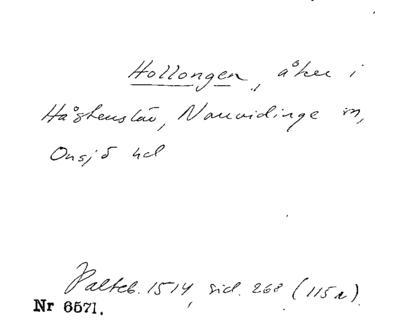 Hollongen, åker i
Håstenslöv, Norrvidinge sn,
Onsjö hd
Palteb. 1514, sid. 268 (115 r).
Nr 6571.